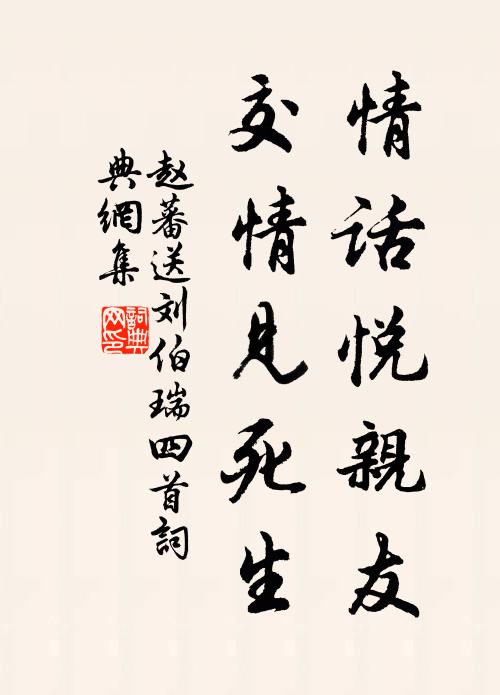 情话悦親友
交情見死生
赵蕃送刘伯瑞四首詞
典網集
詞典
网印